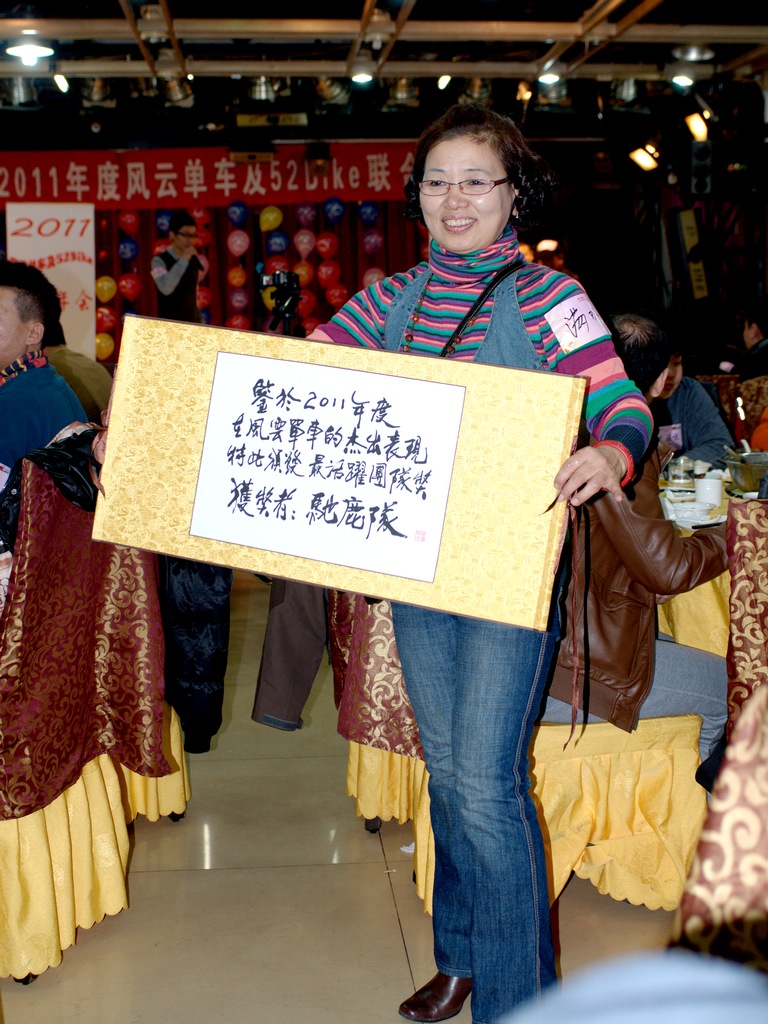 2011年度风云单车及52Bike联合
2011
单车及52Bik
年会
鑒於2011年度
在風雲單車的杰出表現
特此頒發最活躍團隊獎
獲獎者：馳鹿隊